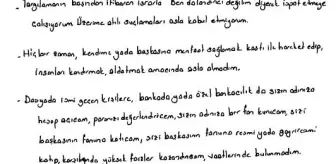 - Yargılamanın başından itibaren ısrarla Ben dolandırıcı değilim diyerek ispat etmeye
çalışıyorum Üzerime atılı suçlamaları asla kabul etmiyorum.
- Hiçbir zaman, kendime yada başkasına menfaat sağlamak kastı ile hareket edip,
insanları kandırmak, aldatmak amacında asla olmadım.
- Dosyada ismi geçen kişilere, bankada yada özel bankacılık da sizin adınıza
hesap açıcam, paranızı değerlendiricem, sizin adınıza bir fon kurucam, sizi
başkasının fonuna katıcam, sizi başkasının fonuna resmi yada gayriresmi
katıp, karşılığında yüksek faizler kazandırıcam, vaatlerinde bulunmadım.